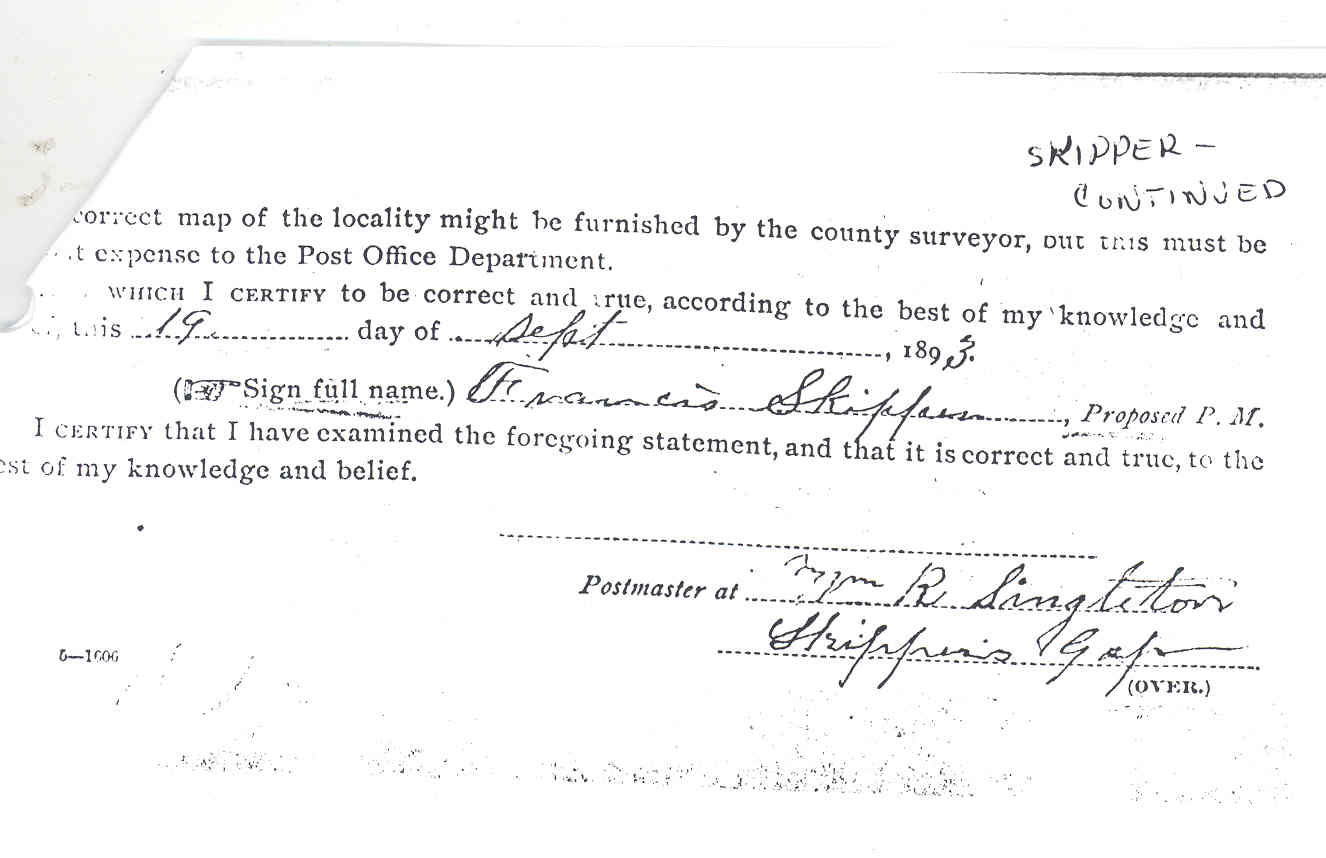 SKIPPER -
CONTINUED
correct map of the locality might be furnished by the county surveyor, but this must be
t expense to the Post Office Department.
WHICH I CERTIFY to be correct and true, according to the best of my knowledge and
this 19 day of Sept, 1893.
(Sign full name.) Francis Skipper, Proposed P. M.
I CERTIFY that I have examined the foregoing statement, and that it is correct and true, to the
est of my knowledge and belief.
Postmaster at Wm R Singleton
Skippers Gap
6—1606
(OVER.)